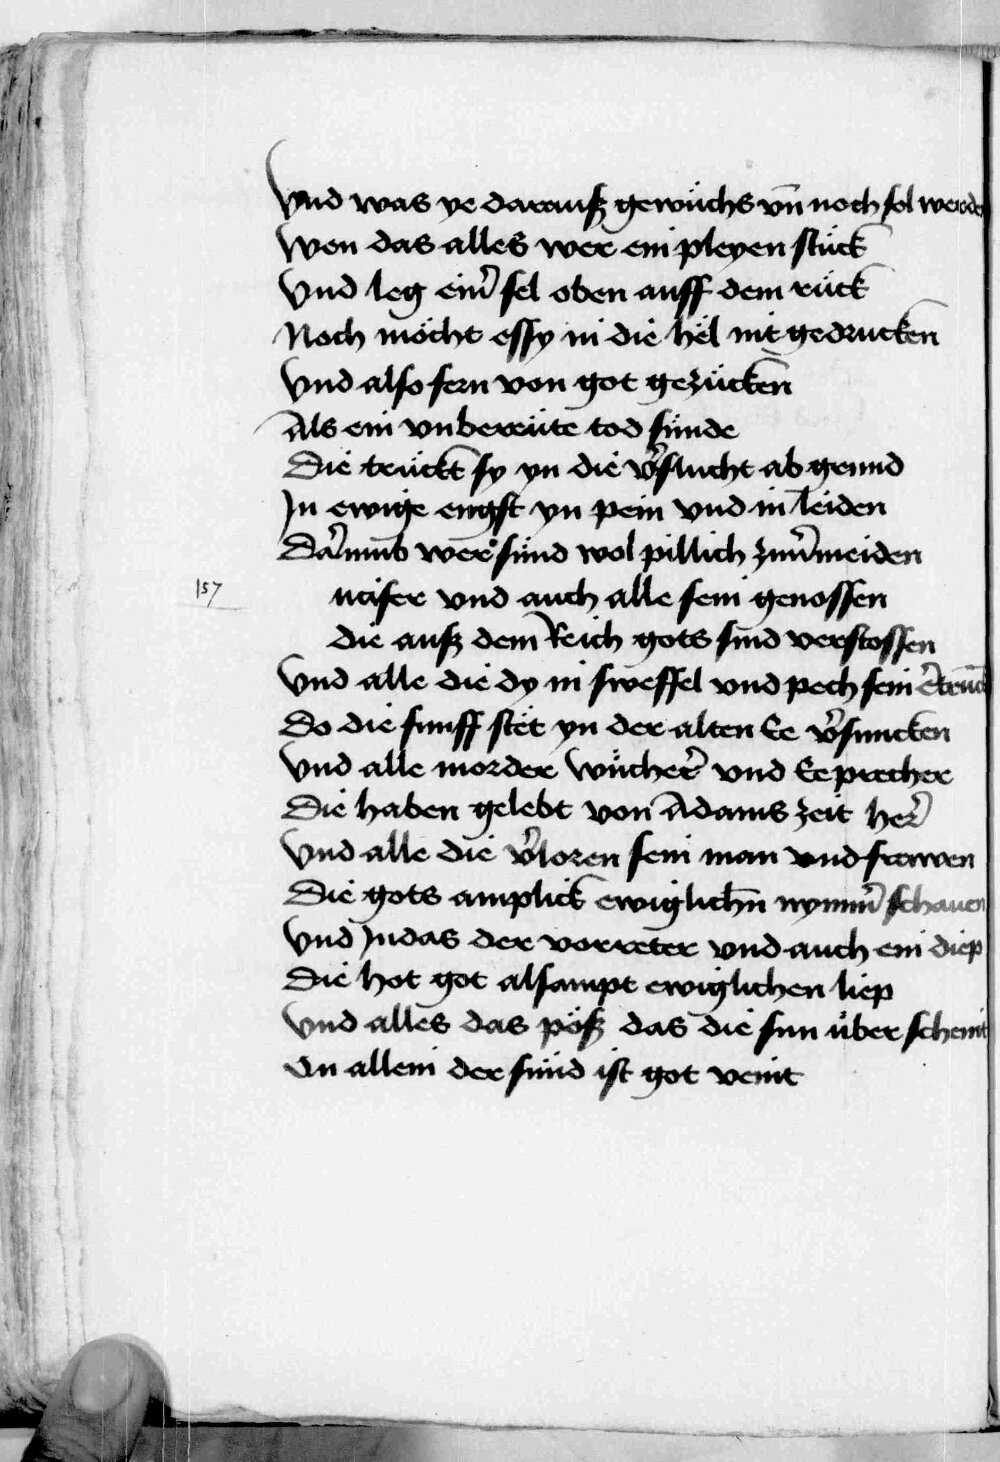 Vnd was ye darauß gewüchs vn̄ noch sol werde
Wen das alles wer ein pleyen stück
Vnd leg eim̄ sel oben auff dem rück
Noch möcht essy in die hel nit gedrucken
Vnd also fern von got gezücken
Als ein vnbereüte tod sünde
Die trückt sy yn die v̄flucht ab grund
In ewige engst yn pein vnd in leiden
Dar̄mmb wer sünd wol pillich zuu̅meiden
157
ucifer vnd auch alle sein genossen
die auß dem Reich gots sind verstossen
Vnd alle die dy in sweffel vnd pech sein
Do die funff stet yn der alten Ee v̄suncken
Vnd alle morder wücher̄ vnd Eeprecher
Die haben gelebt von Adams zeit her̄
Vnd alle die v̄loren sein man vnd frawen
Die gots amplick ewiglichn̄ nymm̄ schauen
Vnd Judas der vorreter vnd auch ein diep
Die hot got alsampt ewiglichen liep
Vnd alles das pöß das die sun über scheint
On allein der sünd ist got veint